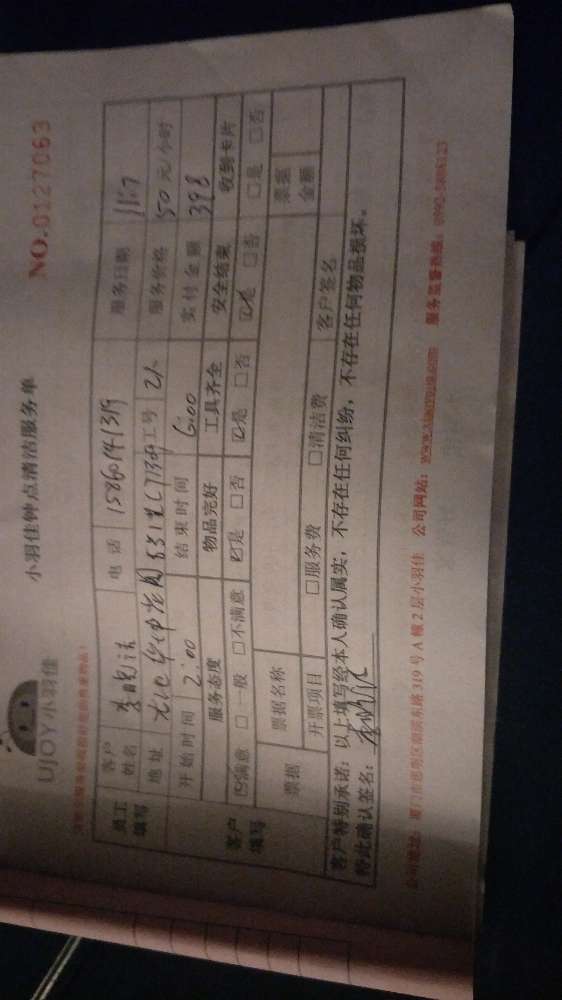 UJOY小羽佳
小羽佳钟点清洁服务单
NO.0127063
员工填写 客户姓名 电话 15860141319 服务日期 11.7
地址 工号 21 服务价格 50元/小时
开始时间 2:00 结束时间 6:00 实付金额 398
客户填写 服务态度 物品完好 工具齐全 安全结束 收到卡片
☑满意 □一般 □不满意 ☑是 □否 ☑是 □否 ☑是 □否 □是 □否
票据 票据名称 票据金额
开票项目 □服务费 □清洁费 客户签名
客户特别承诺:以上填写经本人确认属实,不存在任何纠纷,不存在任何物品损坏。
特此确认签名:
公司地址:厦门市思明区湖滨东路319号A幢2层小羽佳 公司网站: 服务监督热线:0592-5888123